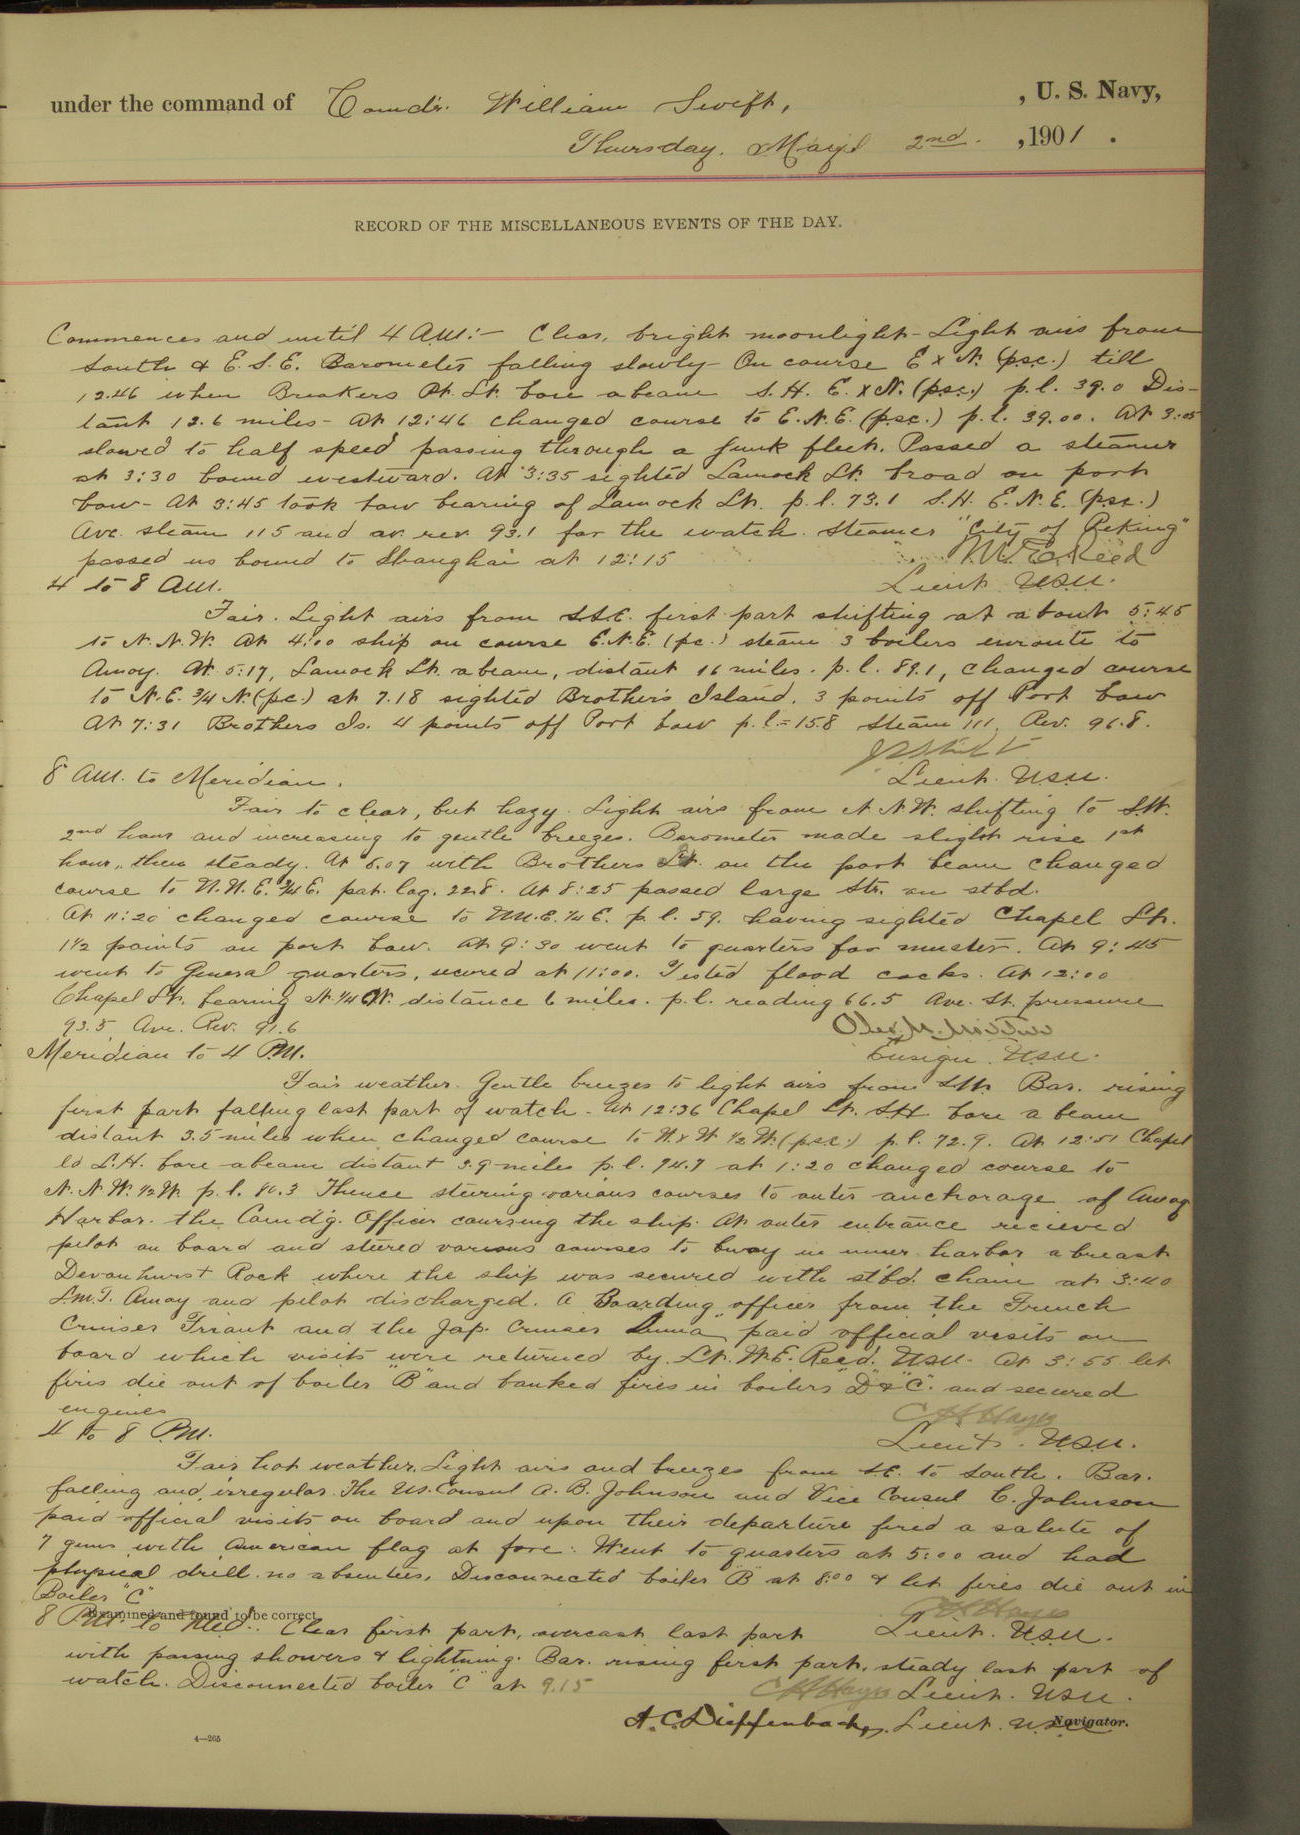 under the command of Comdr. William Swift, , U. S. Navy,
Thursday, May 2nd. , 1901 .
RECORD OF THE MISCELLANEOUS EVENTS OF THE DAY.
Commences and until 4 AM:- Clear, bright moonlight - Light airs from
South & E.S.E. Barometer falling slowly On course E x N. (p.s.c.) till
12.46 when Breakers Pt. Lt. bore abeam S.H. E. x N. (p.s.c.) p.l. 39.0 Dis-
tant 12.6 miles - At 12:46 changed course to E.N.E. (p.s.c.) p.l. 39.00. At 3:05
slowed to half speed passing through a junk fleet. Passed a steamer
at 3:30 bound westward. At 3:35 sighted Lamock Lt. broad on port
bow - At 3:45 took bow bearing of Lamock Lt. p.l. 73.1 S.H. E.N.E. (p.s.c.)
Ave. steam 115 and av. rev. 93.1 for the watch. Steamer "City of Peking"
passed us bound to Shanghai at 12:15 W. E. Reed
4 to 8 AM. Lieut. USN.
Fair. Light airs from SSE. first part shifting at about 5:45
to N.N.W. At 4:00 ship on course E.N.E. (pc.) steam 3 boilers enroute to
Amoy. At 5:17, Lamock Lt. abeam, distant 16 miles. p.l. 89.1, changed course
to N.E. 3/4 N. (p.c.) at 7.18 sighted Brother's Island, 3 points off Port bow
At 7:31 Brothers Is. 4 points off Port bow p.l. = 15.8 Steam 111, Rev. 96.8.
8 AM. to Meridian. Lieut. USN.
Fair to clear, but hazy. Light airs from N N W. shifting to S.W.
2nd hour and increasing to gentle breezes. Barometer made slight rise 1st
hour, then steady. At 8.07 with Brothers on the port beam changed
course to N.N.E. 3/4 E. pat. log. 22.8. At 8:25 passed large Str. on stbd.
At 11:20 changed course to 1/4 E. p.l. 59. having sighted Chapel Lt.
1 1/2 points on port bow. At 9:30 went to quarters for muster. At 9:45
went to General quarters, secured at 11:00. Tested flood cocks. At 12:00
Chapel Lt. bearing distance 6 miles. p.l. reading 66.5 Ave. St. pressure
93.5 Ave. Rev. 91.6
Meridian to 4 P.M. Ensign USN.
Fair weather. Gentle breezes to light airs from Bar. rising
first part falling last part of watch - At 12:36 Chapel Lt. bore abeam
distant 3.5 miles when changed course to 1/2 W. (p.s.c.) p.l. 72.9. At 12:51 Chapel
Id L.H. bore abeam distant 3.9 miles p.l. 74.7 at 1:20 changed course to
N. N W. 1/2 W. p.l. Thence steering various courses to outer anchorage of Amoy
Harbor. the Comd'g. Officer coursing the ship. At outer entrance recieved
pilot on board and steered various courses to buoy in inner harbor abreast
Devonhurst Rock where the ship was secured with stbd. chain at 3:40
L.M.T. Amoy and pilot discharged. A Boarding officer from the French
Cruiser Friant and the Jap. Cruiser paid official visits on
board which visits were returned by Lt. W.E. Reed. USN. At 3:55 let
fires die out of boiler "B" and banked fires in boilers "D" & "C" and secured
engines C H Hayes
4 to 8 P.M. Lieut. USN.
Fair hot weather. Light airs and breezes from S.E. to South. Bar.
falling and irregular. The US. Consul A. B. Johnson and Vice Consul C. Johnson
paid official visits on board and upon their departure fired a salute of
7 guns with American flag at fore. Went to quarters at 5:00 and had
physical drill. no absentees, Disconnected boiler "B" at 8:00 & let fires die out in
Boiler "C" C H Hayes
Examined and found to be correct.
8 P.M. to Mid.: Clear first part, overcast last part Lieut. USN.
with passing showers & lightning. Bar. rising first part, steady last part of
watch. Disconnected boiler "C" at 9.15 C H Hayes Lieut. USN.
A. C. Dieffenbach, Lieut. U.S.N. Navigator.
4—265